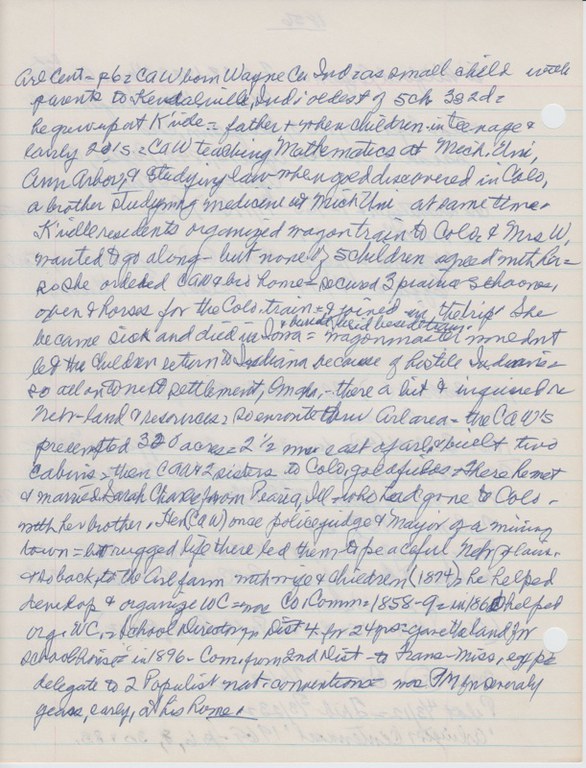 Arl Cent = p6 = CAW born Wayne Co Ind = as small child with
parents to Kendalville, Ind; oldest of 5 ch 3s 2d =
he grew up at K'ville = father + when children in teenage &
early 20's = CAW teaching Mathematics at Mich. Uni,
Ann Arbor, & studying law when gold discovered in Colo,
a brother studying medicine at Mich Uni at same time.
K'ville residents organized wagon train to Colo, & Mrs W,
wanted to go along - but none of 5 children agreed with her =
so she ordered CAW & bro home = secured 3 prairie schooners,
oxen & horses for the Colo. train = & joined in the trip! She
became sick and died in Iowa = & buried beside = wagonmaster wouldn't
let the children return to Indiana because of hostile Indians =
so all on to next settlement, Omaha, - there a bit & inquired re
Nebr - land & resources = so enroute thru Arl area = the CAW'S
preempted 320 acres = 2 1/2 mi east of Arl, & built two
cabins = then CAW & 2 sisters to Colo, gold fields & there he met
& married Sarah Chase from Peoria, Ill - who had gone to Colo -
with her brother. He (CAW) once police judge & Mayor of a mining
town = but rugged life there led them to peaceful Nebr &
& so back to the Arl farm with wife & children (1874) = he helped
develop & organize WC = was Co, Comm = 1858-9 = in 186 helped
org. WC, = School Director in Dist 4 for 24 yrs = gave the land for
schoolhouse = in 1896 - Com. from 2nd Dist - to Trans-Miss, exp =
delegate to 2 Populist nat. conventions = was PM for several
years, early, at his home.